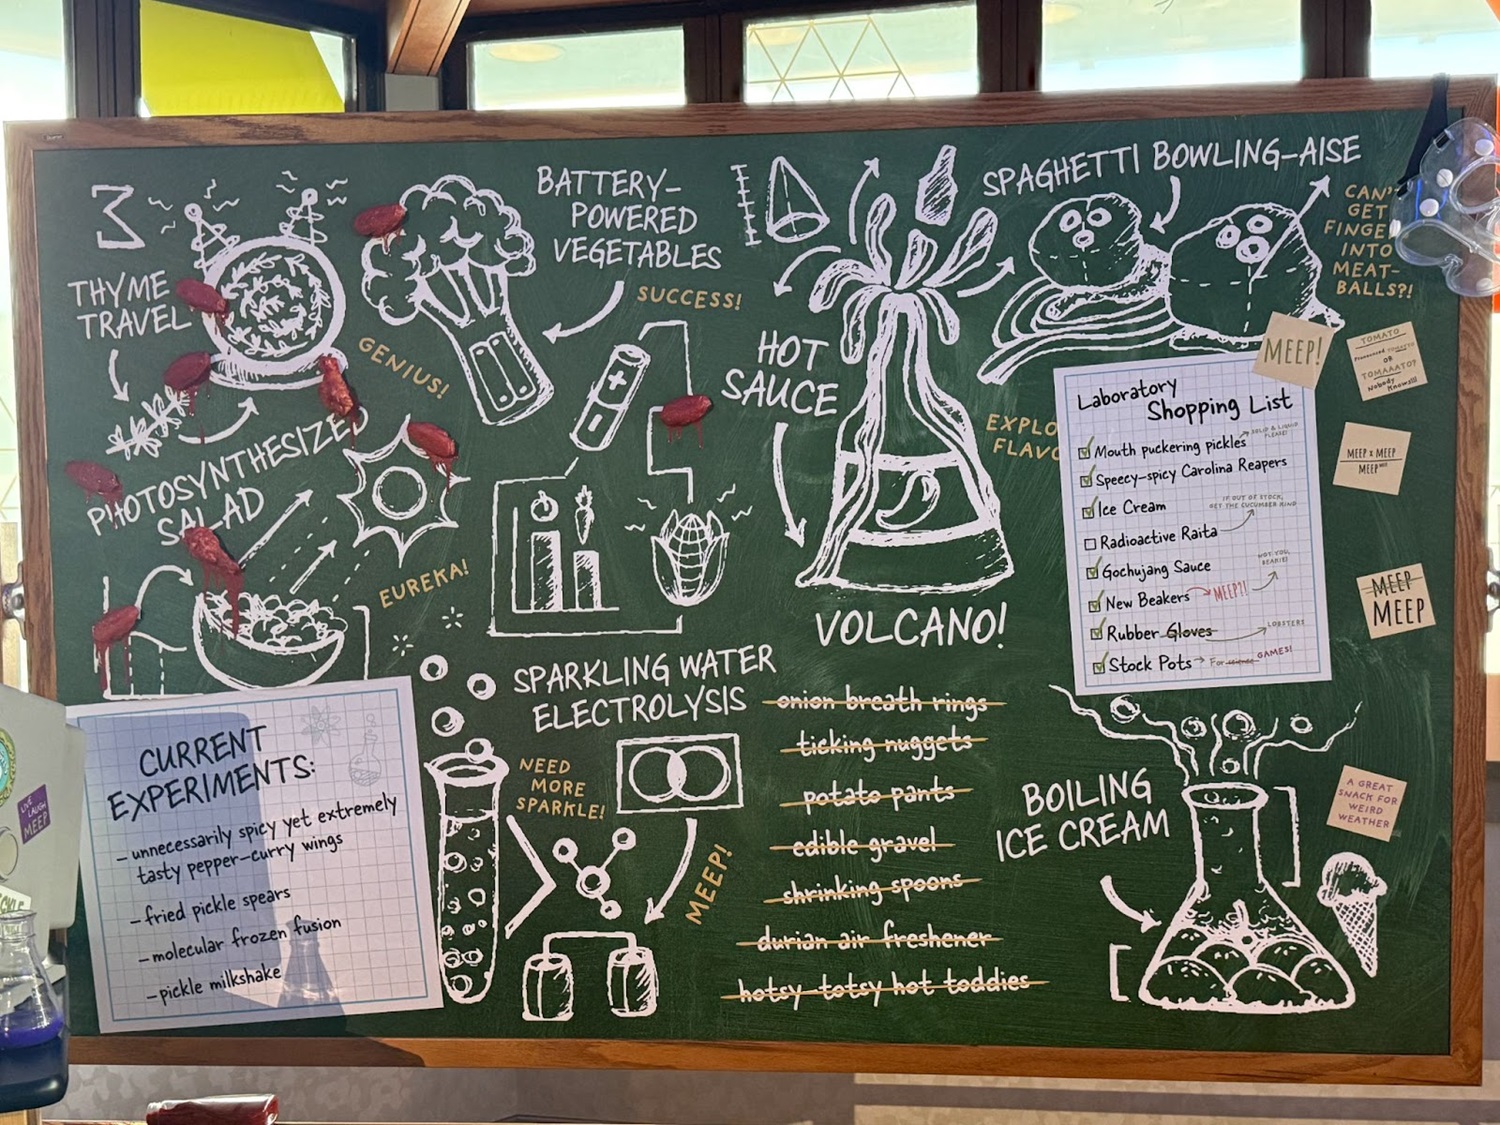 3
THYME
TRAVEL
GENIUS!
BATTERY-
POWERED
VEGETABLES
SUCCESS!
PHOTOSYNTHESIZED
SALAD
EUREKA!
HOT
SAUCE
VOLCANO!
EXPLO
FLAVO
SPAGHETTI BOWLING-AISE
CAN'T
GET
FINGE
INTO
MEAT-
BALLS?!
Laboratory
Shopping List
Mouth puckering pickles
SOLID & LIQUID
PLEASE!
Speecy-spicy Carolina Reapers
Ice Cream
IF OUT OF STOCK,
GET THE CUCUMBER KIND
Radioactive Raita
Gochujang Sauce
NOT YOU,
BEAKIE!
New Beakers
MEEP?!
Rubber Gloves
LOBSTERS
Stock Pots
For science GAMES!
MEEP!
TOMATO
Pronounced TOMATO
OR
TOMAAATO?
Nobody
Knows!!!
MEEP x MEEP
MEEP
MEEP
MEEP
A GREAT
SNACK FOR
WEIRD
WEATHER
CURRENT
EXPERIMENTS:
- unnecessarily spicy yet extremely
tasty pepper-curry wings
- fried pickle spears
- molecular frozen fusion
- pickle milkshake
LIVE
LAUGH
MEEP!
SPARKLING WATER
ELECTROLYSIS
NEED
MORE
SPARKLE!
MEEP!
onion breath rings
ticking nuggets
potato pants
edible gravel
shrinking spoons
durian air freshener
hotsy-totsy hot toddies
BOILING
ICE CREAM